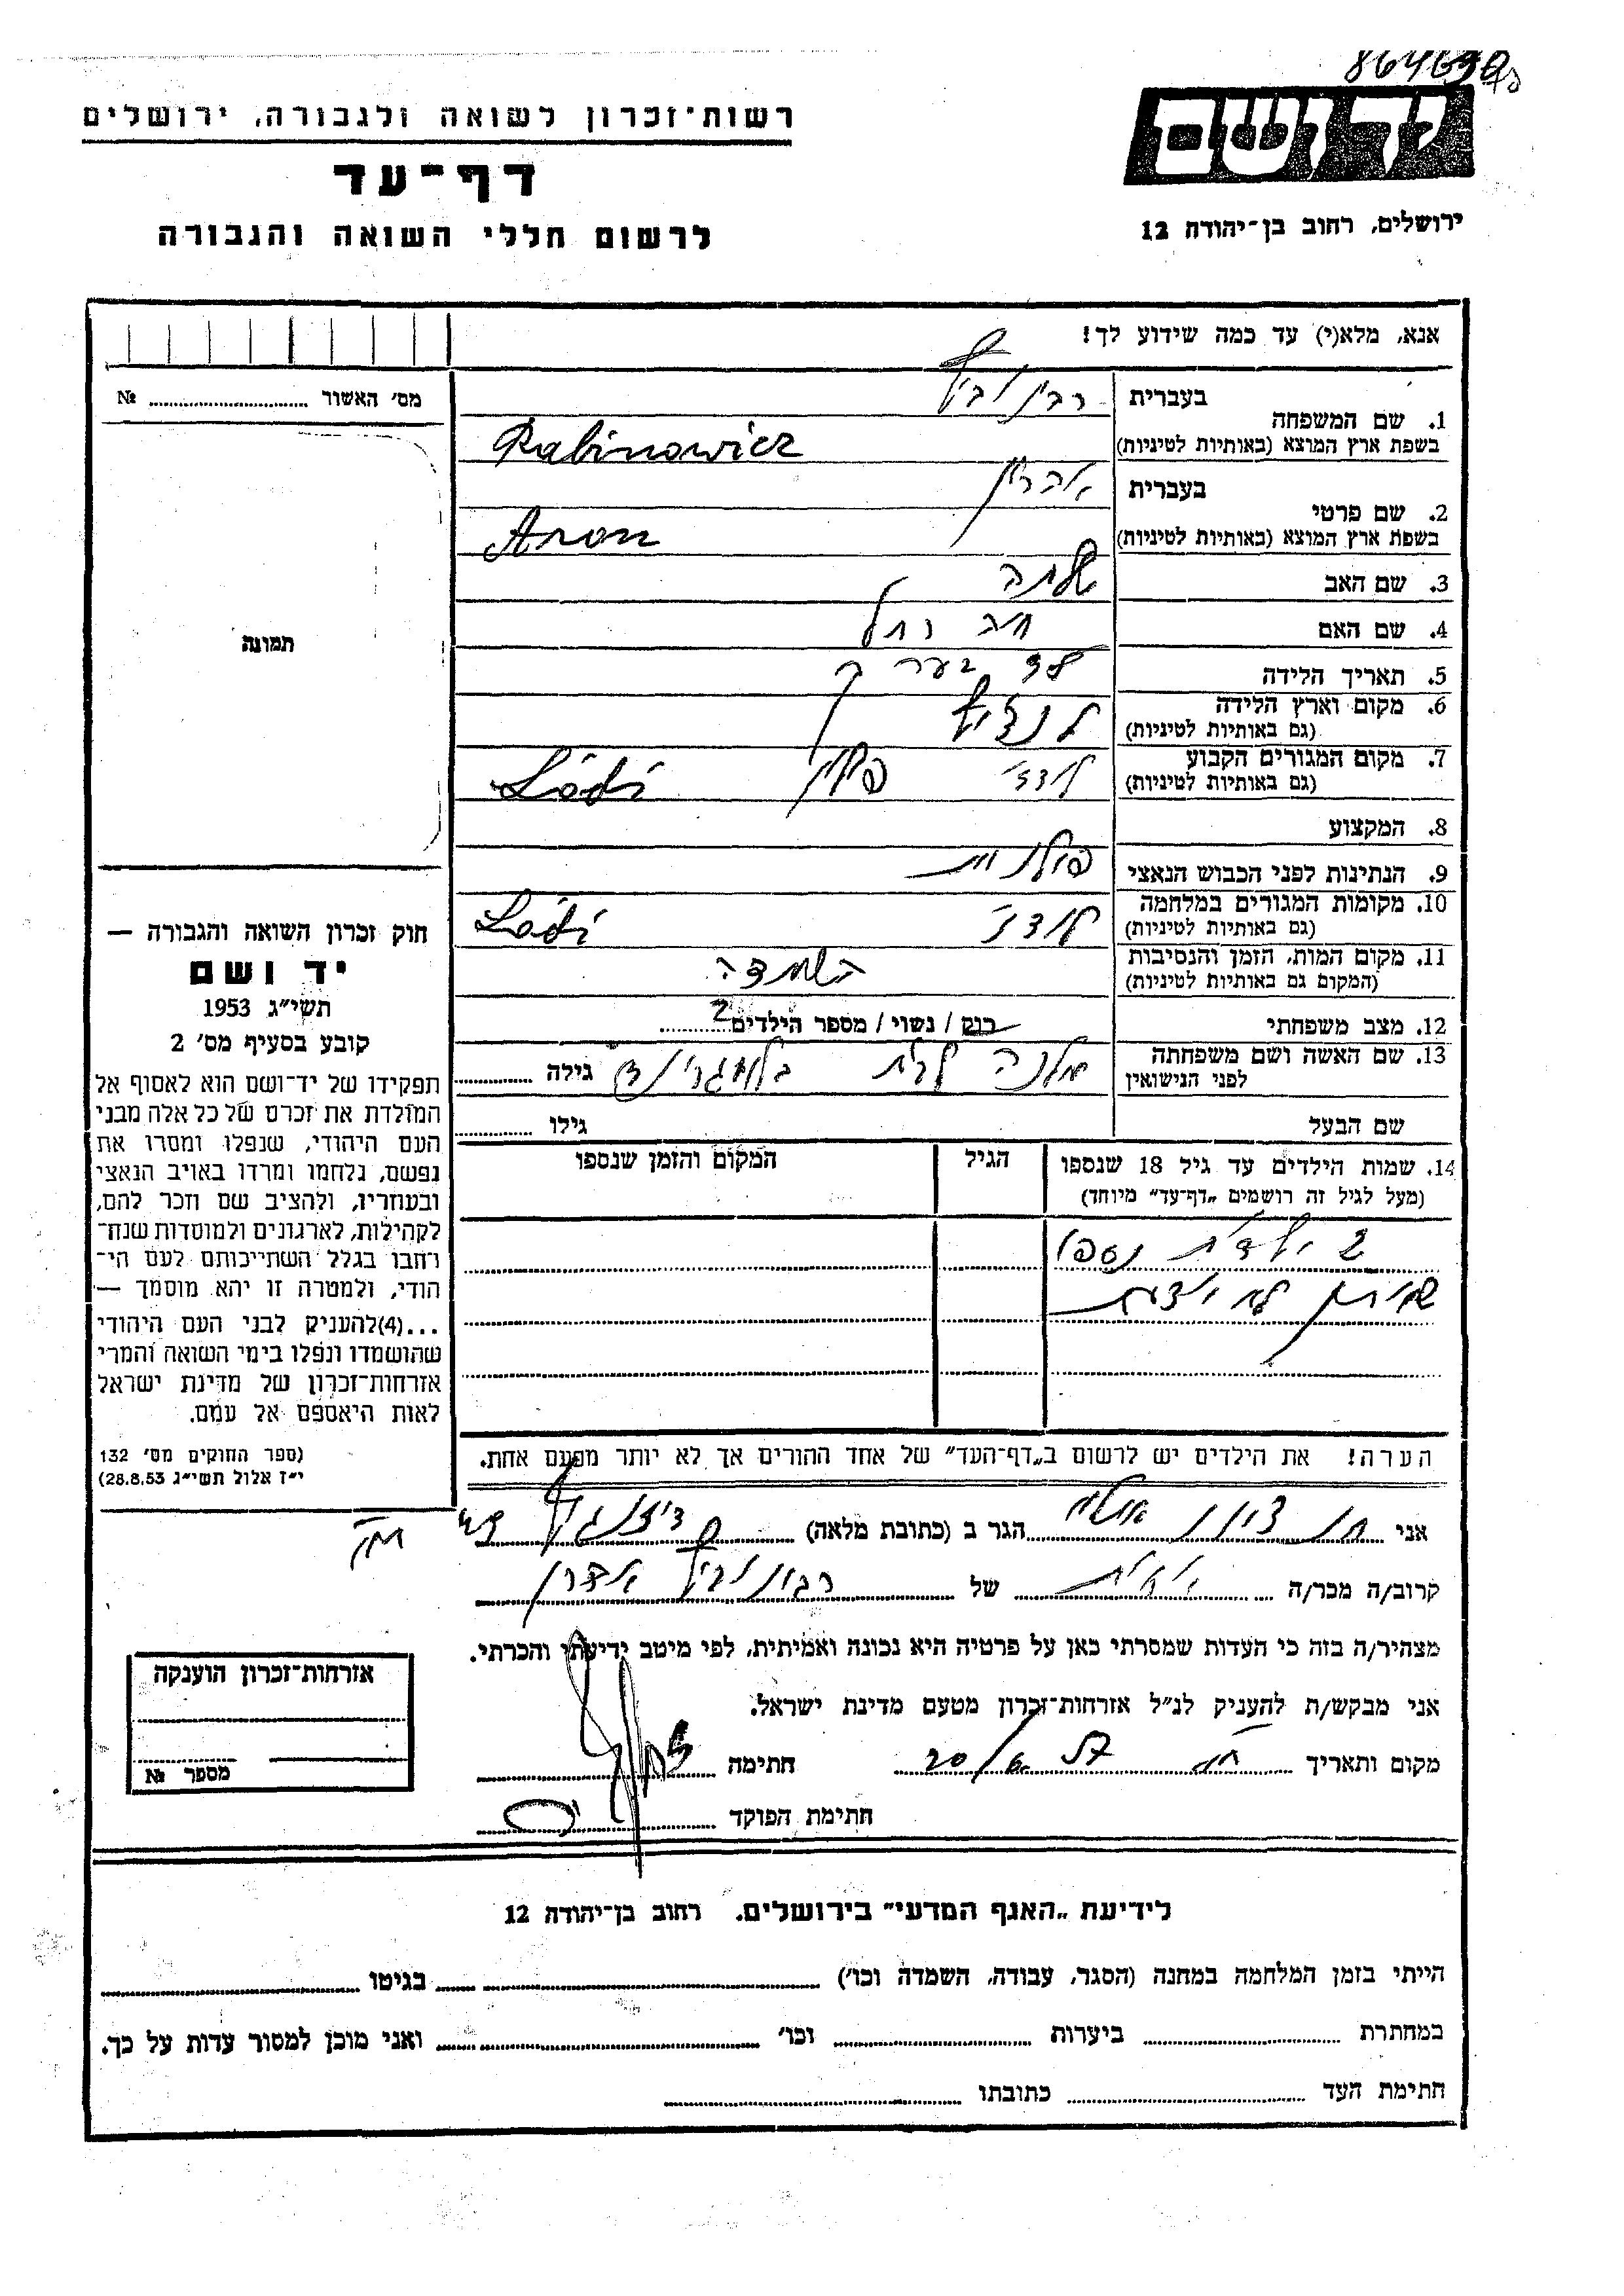 רשות-זכרון לשואה ולגבורה, ירושלים
דף-עד
לרשום חללי השואה והגבורה
ידושם
ירושלים, רחוב בן-יהודה 12
אנא, מלא(י) עד כמה שידוע לך!
מס׳ האשור № 
תמונה
חוק זכרון השואה והגבורה —
יד ושם
תשי״ג 1953
קובע בסעיף מס׳ 2
תפקידו של יד-ושם הוא לאסוף אל
המולדת את זכרם של כל אלה מבני
העם היהודי, שנפלו ומסרו את
נפשם, נלחמו ומרדו באויב הנאצי
ובעוזריו, ולהציב שם וזכר להם,
לקהילות, לארגונים ולמוסדות שנח-
רחבו בגלל השתייכותם לעם הי-
הודי, ולמטרה זו יהא מוסמך —
...(4)להעניק לבני העם היהודי
שהושמדו ונפלו בימי השואה והמרי
אזרחות-זכרון של מדינת ישראל
לאות היאספם אל עמם.
(ספר החוקים מס׳ 132
י״ז אלול תשי״ג 28.8.53)
בעברית רבינוביץ
1. שם המשפחה
בשפת ארץ המוצא (באותיות לטיניות) Rabinowicz
בעברית אהרון
2. שם פרטי
בשפת ארץ המוצא (באותיות לטיניות) Aron
3. שם האב שלמה
4. שם האם חיה רחל
5. תאריך הלידה
6. מקום וארץ הלידה
(גם באותיות לטיניות)
7. מקום המגורים הקבוע לודז׳ פולין Łódź
(גם באותיות לטיניות)
8. המקצוע
9. הנתינות לפני הכבוש הנאצי פולנית
10. מקומות המגורים במלחמה לודז׳ Łódź
(גם באותיות לטיניות)
11. מקום המות, הזמן והנסיבות השמדה
(המקום גם באותיות לטיניות)
12. מצב משפחתי רוק / נשוי / מספר הילדים 2
13. שם האשה ושם משפחתה גילה
לפני הנישואין
שם הבעל גילו
14. שמות הילדים עד גיל 18 שנספו הגיל המקום והזמן שנספו
(מעל לגיל זה רושמים „דף-עד״ מיוחד)
2 ילדים נספו
שמותן לא ידוע
הערה! את הילדים יש לרשום ב„דף-העד״ של אחד ההורים אך לא יותר מפעם אחת.
אני הגר ב (כתובת מלאה) דיזנגוף
קרוב/ה מכר/ה של רבינוביץ אהרן
מצהיר/ה בזה כי העדות שמסרתי כאן על פרטיה היא נכונה ואמיתית, לפי מיטב ידיעתי והכרתי.
אני מבקש/ת להעניק לנ״ל אזרחות-זכרון מטעם מדינת ישראל.
מקום ותאריך חתימה
חתימת הפוקד
אזרחות-זכרון הוענקה
מספר №
לידיעת „האגף המדעי״ בירושלים. רחוב בן-יהודה 12
הייתי בזמן המלחמה במחנה (הסגר, עבודה, השמדה וכו׳) בגיטו
במחתרת ביערות וכו׳ ואני מוכן למסור עדות על כך.
חתימת העד כתובתו